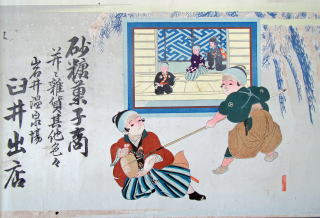 砂糖菓子商
并ニ雑貨其他色々
岩井温泉場
臼井出店